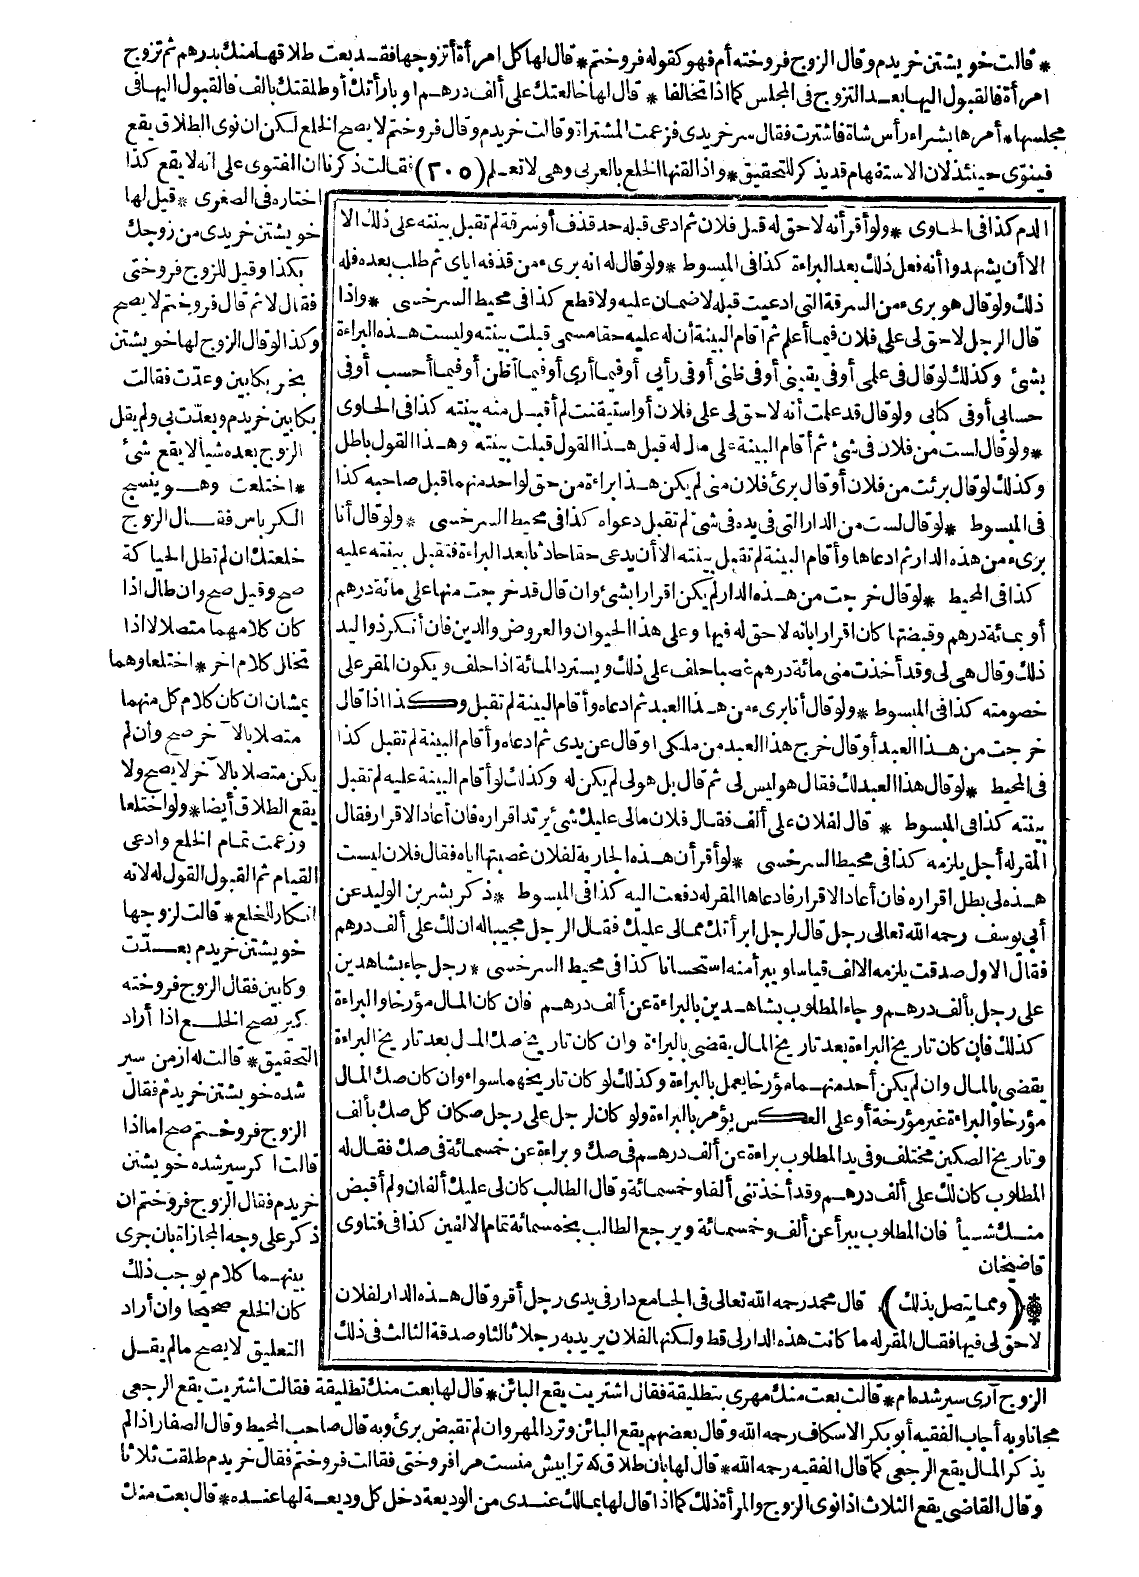 * قالت خويشتن خريدم وقال الزوج فروخته أم فهو كقوله فروختم * قال لها كل امرأة أتزوجها فقد بعت طلاقها منك بدرهم ثم تزوج
امرأة فالقبول اليها بعد التزوج فى المجلس كما اذا تخالفا * قال لها خالعتك على ألف درهم او بارأتك أو طلقتك بالف فالقبول اليها فى
مجلسها * أمرها بشراء رأس شاة فاشترت فقال سر خريدى فزعمت المشتراة وقالت خريدم وقال فروختم لا يصح الخلع لكن ان نوى الطلاق يقع
فينوى حينئذ لان الاستفهام قد يذكر للتحقيق * واذا لقنها الخلع بالعربى وهى لا تعلم (٢٠٥) فقالت ذكرنا ان الفتوى على انه لا يقع كذا
اختاره فى الصغرى * قيل لها
خويشتن خريدى من زوجك
بكذا وقيل للزوج فروختى
فقال لا ثم قال فروختم لا يصح
وكذا لو قال الزوج لها خويشتن
بخر بكابين وعدت فقالت
بكابين خريدم وبعدت بى ولم يقل
الزوج بعده شيأ لا يقع شئ
* اختلعت وهو ينسج
الكرباس فقال الزوج
خلعتك ان لم تطل الحياكة
صح وقيل صح وان طال اذا
كان كلامهما متصلا لا اذا
تخلل كلام اخر * اختلعا وهما
يمشان ان كان كلام كل منهما
متصلا بالآخر صح وأن لم
يكن متصلا بالآخر لا يصح ولا
يقع الطلاق أيضا * ولو اختلعا
وزعمت تمام الخلع وادعى
القيام ثم القبول القول له لانه
انكار الخلع * قالت لزوجها
خويشتن خريدم بعدّت
وكابين فقال الزوج فروخته
كير تصح الخلع اذا أراد
التحقيق * قالت له از من سير
شده خويشتن خريدم فقال
الزوج فروختم صح اما اذا
قالت اكر سير شده خويشتن
خريدم فقال الزوج فروختم ان
ذكر على وجه المجازاة بان جرى
بينهما كلام يوجب ذلك
كان الخلع صحيحا وان أراد
التعليق لا يصح ما لم يقل
الدم كذا فى الحاوى * ولو أقر أنه لا حق له قبل فلان ثم ادعى قبله حد قذف أو سرقة لم تقبل بينته على ذلك الا
الا أن يشهدوا أنه فعل ذلك بعد البراءة كذا فى المبسوط * ولو قال له انه برىء من قذفه اياى ثم طلب بعده فله
ذلك ولو قال هو برىء من السرقة التى ادعيت قبله لا ضمان عليه ولا قطع كذا فى محيط السرخسى * واذا
قال الرجل لا حق لى على فلان فيما أعلم ثم أقام البينة أن له عليه حقا مسمى قبلت بينته وليست هذه البراءة
بشئ وكذلك لو قال فى علمى أو فى يقينى أو فى ظنى أو فى رأيى أو فيما أرى أو فيما أظن أو فيما أحسب أو فى
حسابى أو فى كتابى ولو قال قد علمت أنه لا حق لى على فلان أو استيقنت لم أقبل منه بينته كذا فى الحاوى
* ولو قال لست من فلان فى شئ ثم أقام البينة على مال له قبل هذا القول قبلت بينته وهذا القول باطل
وكذلك لو قال برئت من فلان أو قال برئ فلان منى لم يكن هذا براءة من حق لواحد منهما قبل صاحبه كذا
فى المبسوط * لو قال لست من الدار التى فى يده فى شئ لم تقبل دعواه كذا فى محيط السرخسى * ولو قال أنا
برىء من هذه الدار ثم ادعاها وأقام البينة لم تقبل بينته الا أن يدعى حقا حادثا بعد البراءة فتقبل بينته عليه
كذا فى المحيط * لو قال خرجت من هذه الدار لم يكن اقرارا بشئ وان قال قد خرجت منها على مائة درهم
أو بمائة درهم وقبضتها كان اقرارا بانه لا حق له فيها وعلى هذا الحيوان والعروض والدين فان أنكر ذو اليد
ذلك وقال هى لى وقد أخذت منى مائة درهم غصبا حلف على ذلك ويسترد المائة اذا حلف ويكون المقر على
خصومته كذا فى المبسوط * ولو قال أنا برىء من هذا العبد ثم ادعاه وأقام البينة لم تقبل وكذا اذا قال
خرجت من هذا العبد أو قال خرج هذا العبد من ملكى او قال عن يدى ثم ادعاه وأقام البينة لم تقبل كذا
فى المحيط * لو قال هذا العبد لك فقال هو ليس لى ثم قال بل هو لى لم يكن له وكذلك لو أقام البينة عليه لم تقبل
بينته كذا فى المبسوط * قال لفلان على ألف فقال فلان مالى عليك شئ برتد اقراره فان أعاد الاقرار فقال
المقر له أجل يلزمه كذا فى محيط السرخسى * لو أقر أن هذه الجارية لفلان غصبتها اياه فقال فلان ليست
هذه لى بطل اقراره فان أعاد الاقرار فادعاها المقر له دفعت اليه كذا فى المبسوط * ذكر بشر بن الوليد عن
أبى يوسف رحمه الله تعالى رجل قال لرجل ابرأتك ممالى عليك فقال الرجل مجيبا له ان لك على ألف درهم
فقال الاول صدقت يلزمه الالف قياسا ويبرأ منه استحسانا كذا فى محيط السرخسى * رجل جاء بشاهدين
على رجل بألف درهم وجاء المطلوب بشاهدين بالبراءة عن ألف درهم فان كان المال مؤرخا والبراءة
كذلك فان كان تاريخ البراءة بعد تاريخ المال يقضى بالبراءة وان كان تاريخ صك المال بعد تاريخ البراءة
يقضى بالمال وان لم يكن أحد منهما مؤرخا يعمل بالبراءة وكذلك لو كان تاريخهما سواء وان كان صك المال
مؤرخا والبراءة غير مؤرخة أو على العكس يؤمر بالبراءة ولو كان لرجل على رجل صكان كل صك بألف
وتاريخ الصكين مختلف وفى يد المطلوب براءة عن ألف درهم فى صك وبراءة عن خمسمائة فى صك فقال له
المطلوب كان لك على ألف درهم وقد أخذتنى ألفا وخمسمائة وقال الطالب كان لى عليك ألفان ولم أقبض
منك شيأ فان المطلوب يبرأ عن ألف وخمسمائة ويرجع الطالب بخمسمائة تمام الالفين كذا فى فتاوى
قاضيخان
* (ومما يتصل بذلك) قال محمد رحمه الله تعالى فى الجامع دار فى يدى رجل أقر وقال هذه الدار لفلان
لا حق لى فيها فقال المقر له ما كانت هذه الدار لى قط ولكنها لفلان يريد به رجلا ثالثا وصدقه الثالث فى ذلك
الزوج آرى سير شده ام * قالت بعت منك مهرى بتطليقة فقال اشتريت يقع البائن * قال لها بعت منك تطليقة فقالت اشتريت يقع الرجعى
مجانا وبه أجاب الفقيه أبو بكر الاسكاف رحمه الله وقال بعضهم يقع البائن وترد المهر وان لم تقبض برئ وبه قال صاحب المحيط وقال الصفار اذا لم
يذكر المال يقع الرجعى كما قال الفقيه رحمه الله * قال لها بان طلاق كه ترابيش منست مرا فروختى فقالت فروختم فقال خريدم طلقت ثلاثا
وقال القاضى يقع الثلاث اذا نوى الزوج والمرأة ذلك كما اذا قال لها بمالك عندى من الوديعة دخل كل وديعة لها عنده * قال بعت منك